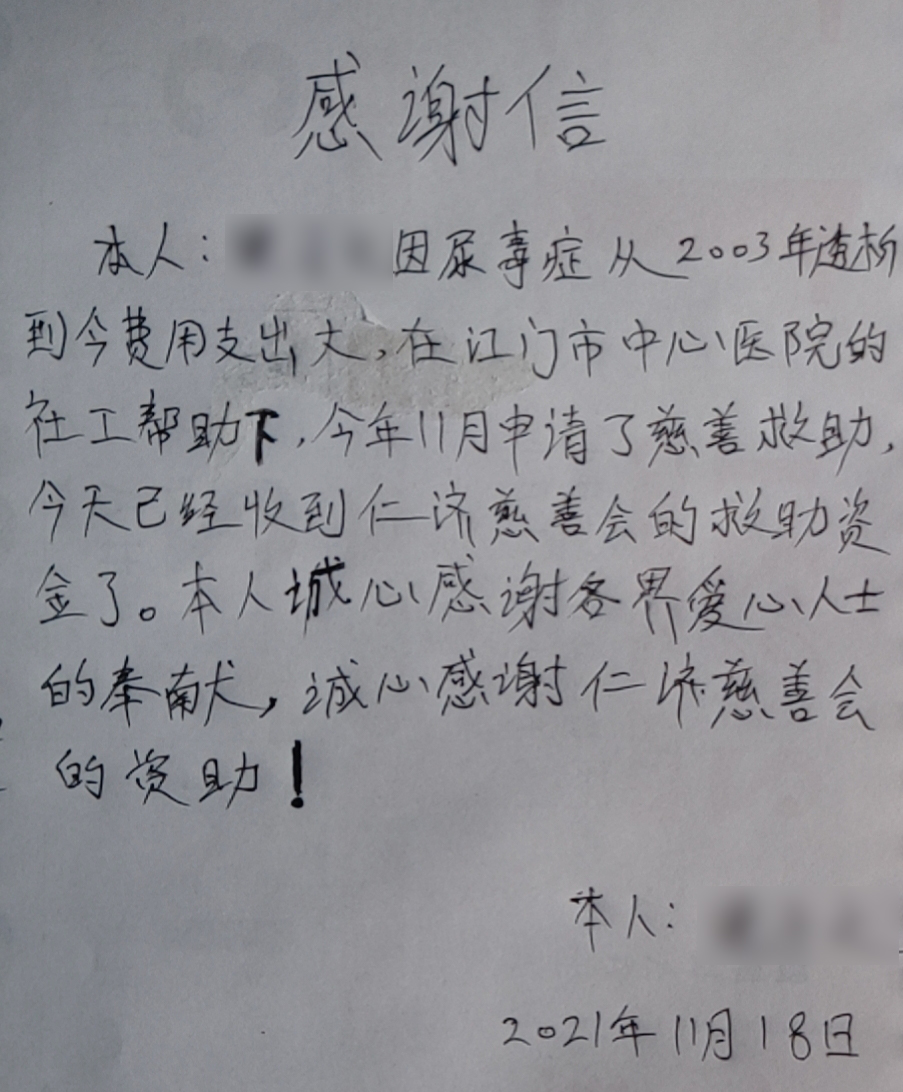 感谢信
本人：因尿毒症从2003年透析
到今费用支出大，在江门市中心医院的
社工帮助下，今年11月申请了慈善救助，
今天已经收到仁济慈善会的救助资
金了。本人城心感谢各界爱心人士
的奉献，诚心感谢仁济慈善会
的资助！
本人：
2021年11月18日